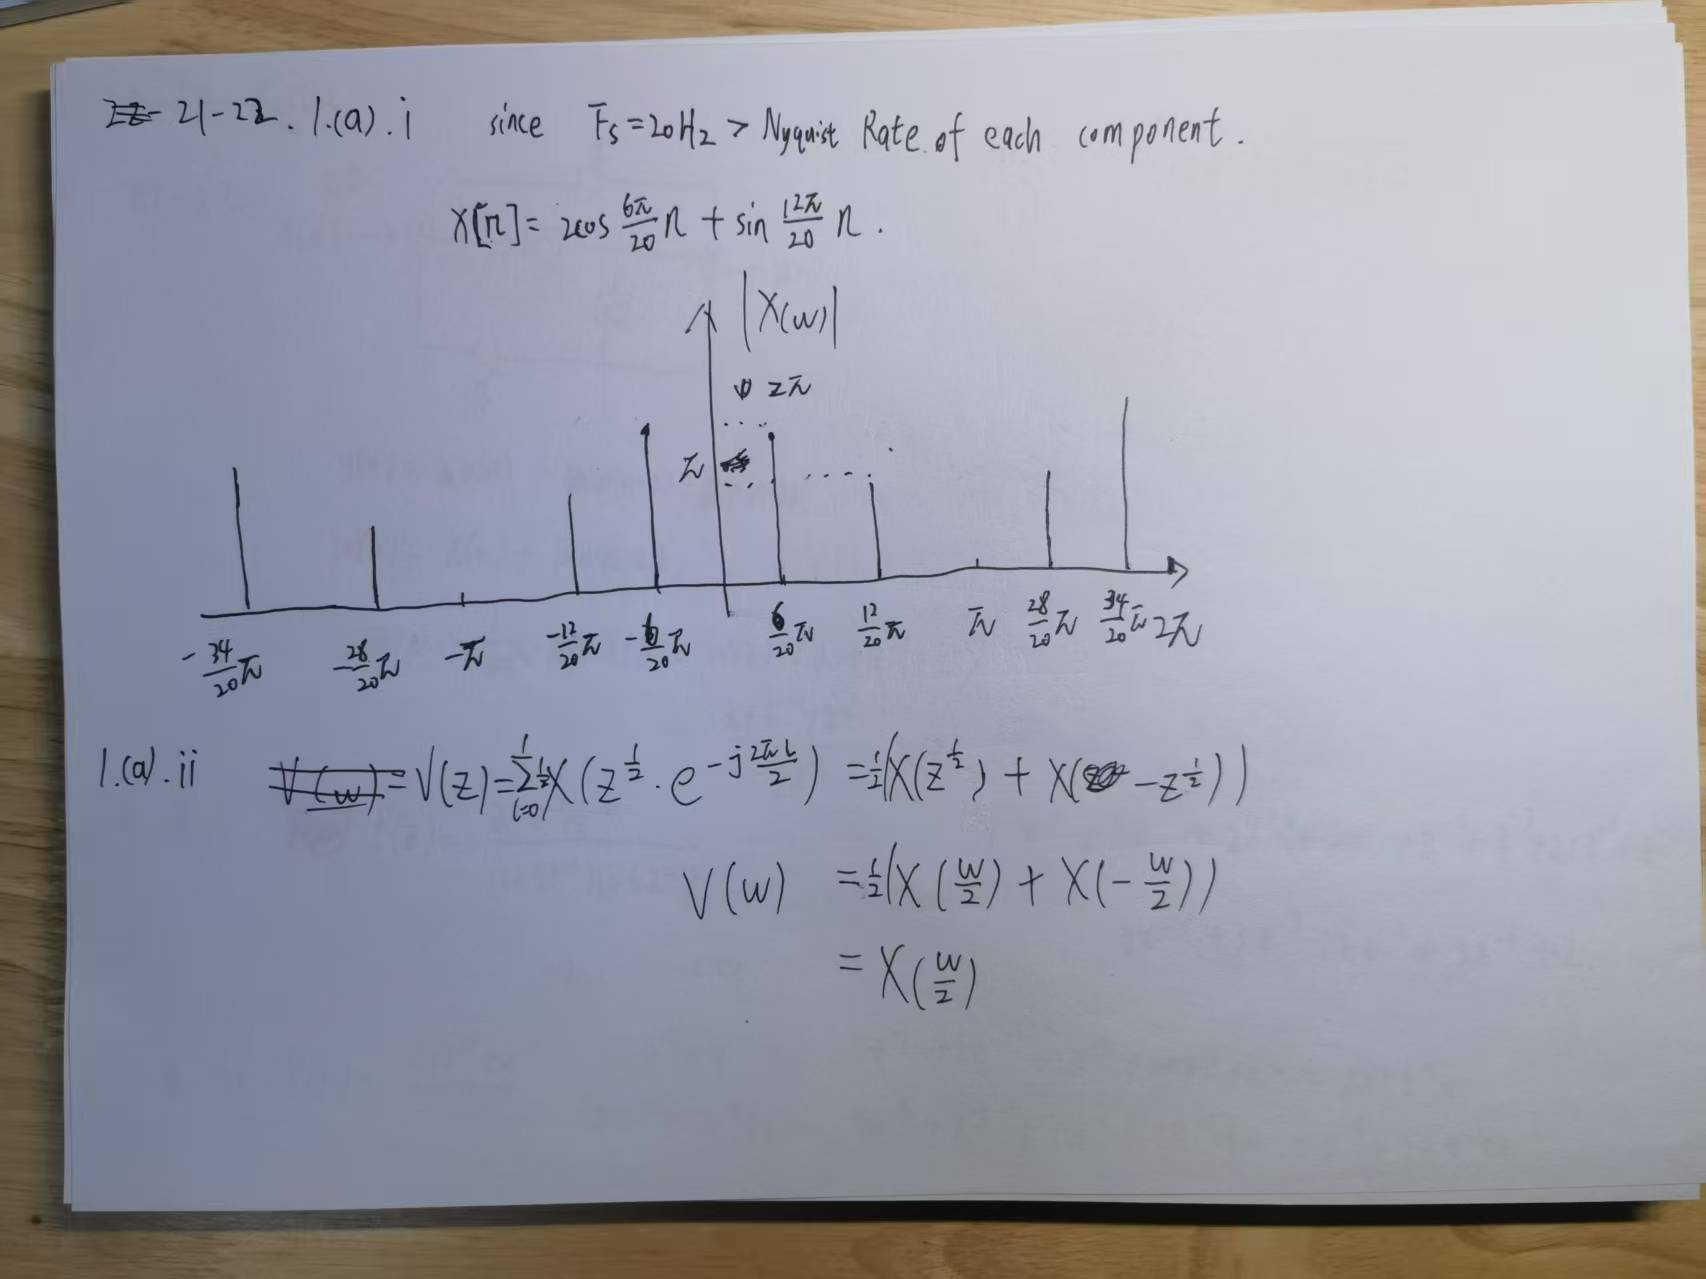 21-22. 1.(a).i since Fs=20Hz > Nyquist Rate of each component.
X[n]= 2cos 6π/20 n + sin 12π/20 n.
|X(w)|
2π
π
-34/20π -28/20π -π -12/20π -6/20π 6/20π 12/20π π 28/20π 34/20π 2π
1.(a).ii V(w)= V(z)=∑_{l=0}^{1} 1/2 X(z^{1/2}·e^{-j 2πl/2}) =1/2(X(z^{1/2}) + X(-z^{1/2}))
V(w) =1/2(X(w/2) + X(-w/2))
= X(w/2)